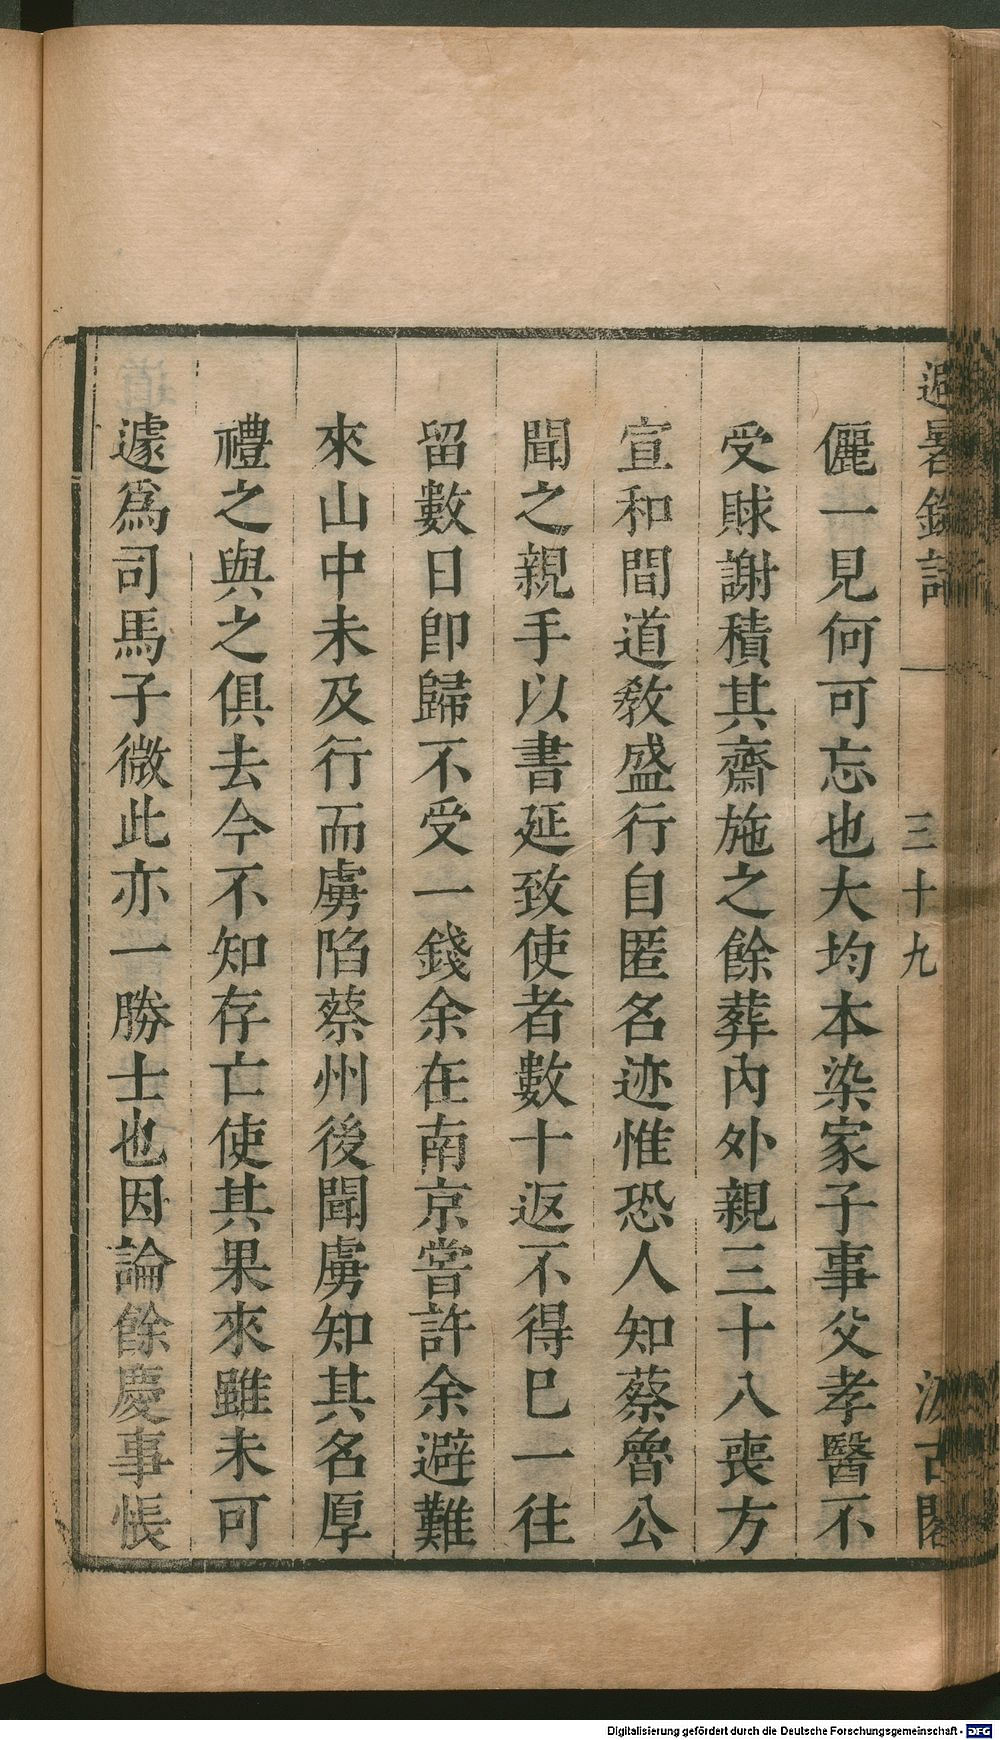 避暑錄話
三十九
汲古閣
儷一見何可忘也大均本染家子事父孝醫不
受賕謝積其齋施之餘葬內外親三十八喪方
宣和間道教盛行自匿名迹惟恐人知蔡魯公
聞之親手以書延致使者數十返不得已一往
留數日卽歸不受一錢余在南京嘗許余避難
來山中未及行而虜陷蔡州後聞虜知其名厚
禮之與之俱去今不知存亡使其果來雖未可
遽爲司馬子微此亦一勝士也因論餘慶事悵
Digitalisierung gefördert durch die Deutsche Forschungsgemeinschaft - DFG